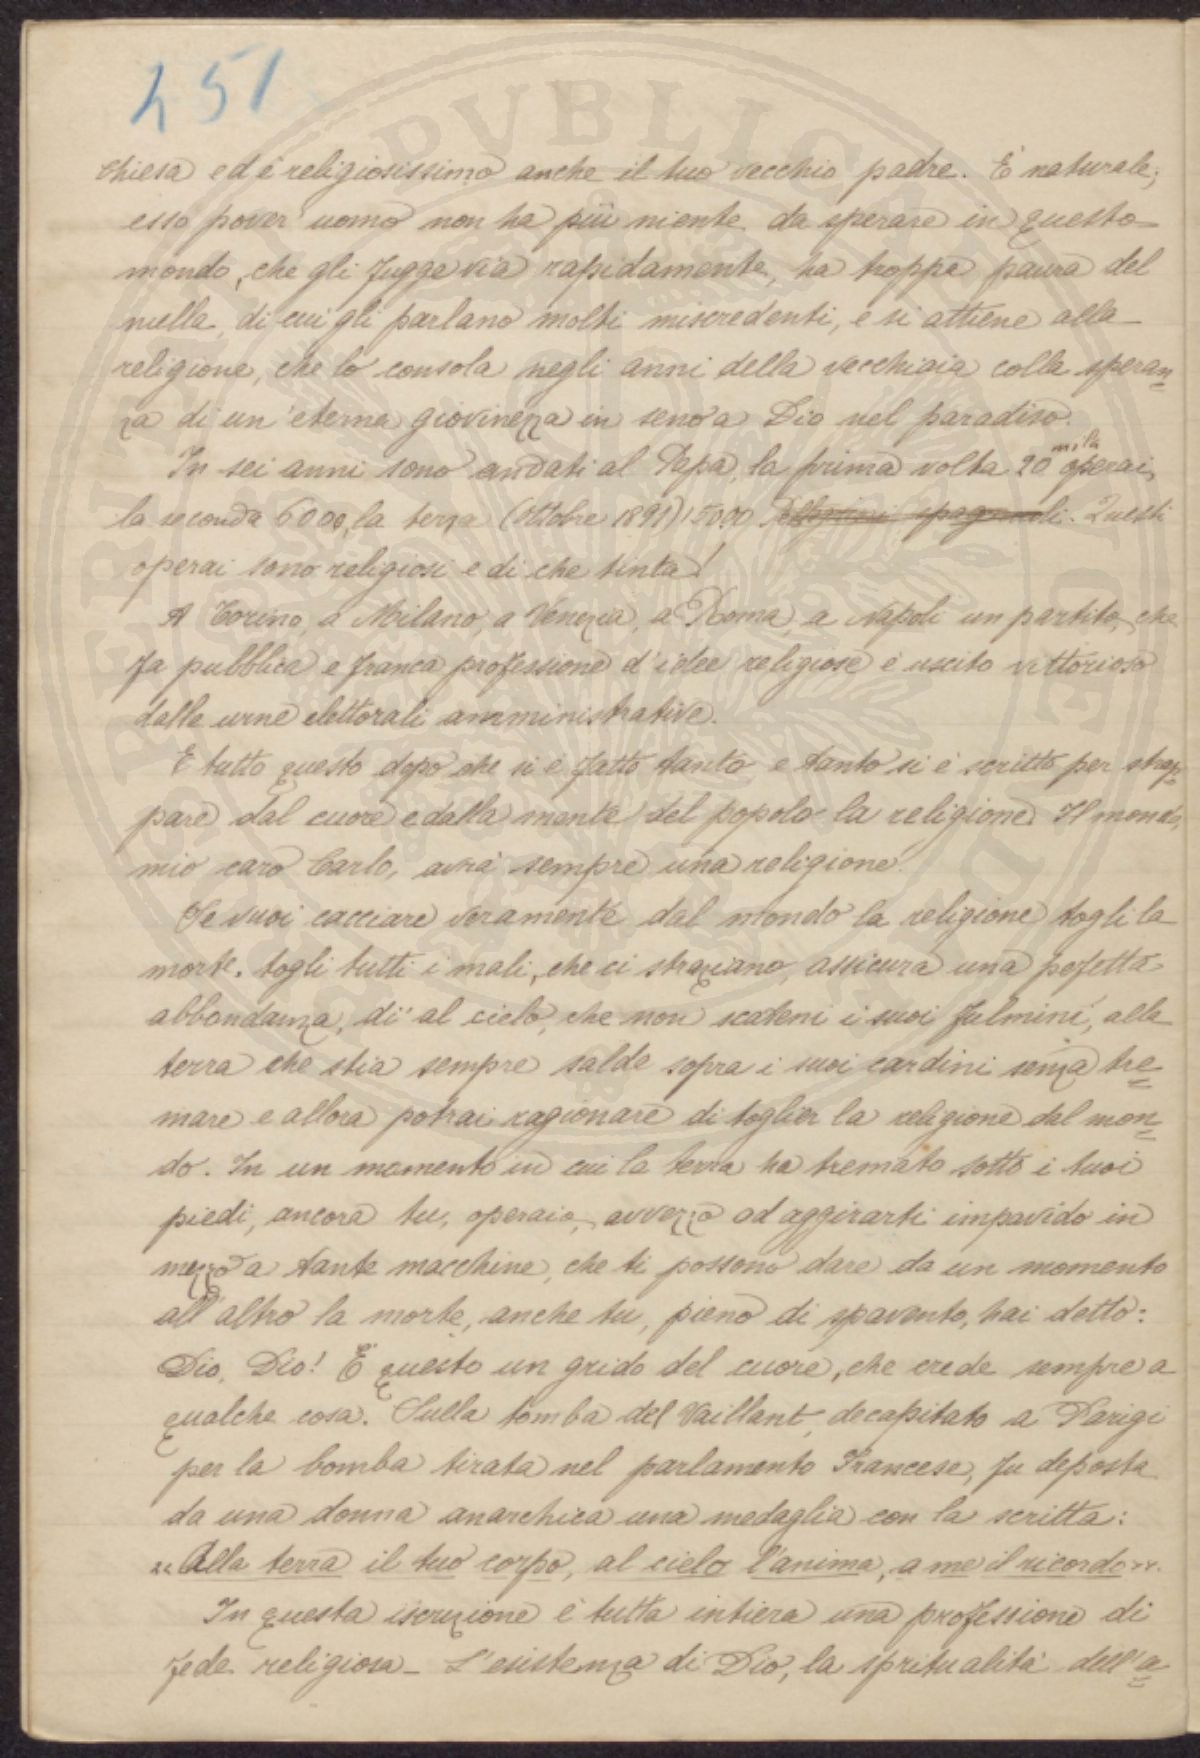 451
chiesa ed è religiosissimo anche il tuo vecchio padre. È naturale;
esso pover' uomo non ha più niente da sperare in questo
mondo, che gli fugge via rapidamente, ha troppa paura del
nulla, di cui gli parlano molti miscredenti, e si attiene alla
religione, che lo consola negli anni della vecchiaia colla speran=
za di un'eterna giovinezza in seno a Dio nel paradiso.
In sei anni sono andati al Papa, la prima volta 20 mila operai,
la seconda 6000, la terza (Ottobre 1891) 15000 pellegrini spagnuoli. Questi
operai sono religiosi e di che tinta!
A Torino, a Milano, a Venezia, a Roma, a Napoli un partito, che
fa pubblica e franca professione d'idee religiose è uscito vittorioso
dalle urne elettorali amministrative.
E tutto questo dopo che si è fatto tanto e tanto si è scritto per strap=
pare dal cuore e dalla mente del popolo la religione. Il mondo,
mio caro Carlo, avrà sempre una religione.
Se vuoi cacciare veramente dal mondo la religione togli la
morte, togli tutti i mali, che ci straziano, assicura una pefetta
abbondanza, di' al cielo, che non scateni i suoi fulmini, alla
terra che stia sempre salda sopra i suoi cardini senza tre=
mare e allora potrai ragionare di toglier la religione dal mon=
do. In un momento in cui la terra ha tremato sotto i tuoi
piedi, ancora tu, operaio, avvezzo ad aggirarti impavido in
mezzo a tante macchine, che ti possono dare da un momento
all'altro la morte, anche tu, pieno di spavento, hai detto:
Dio, Dio! È questo un grido del cuore, che crede sempre a
qualche cosa. Sulla tomba del Vaillant, decapitato a Parigi
per la bomba tirata nel parlamento Francese, fu deposta
da una donna anarchica una medaglia con la scritta:
«Alla terra il tuo corpo, al cielo l'anima, a me il ricordo».
In questa iscrizione è tutta intiera una professione di
fede religiosa _ L'esistenza di Dio, la spritualità dell'a=